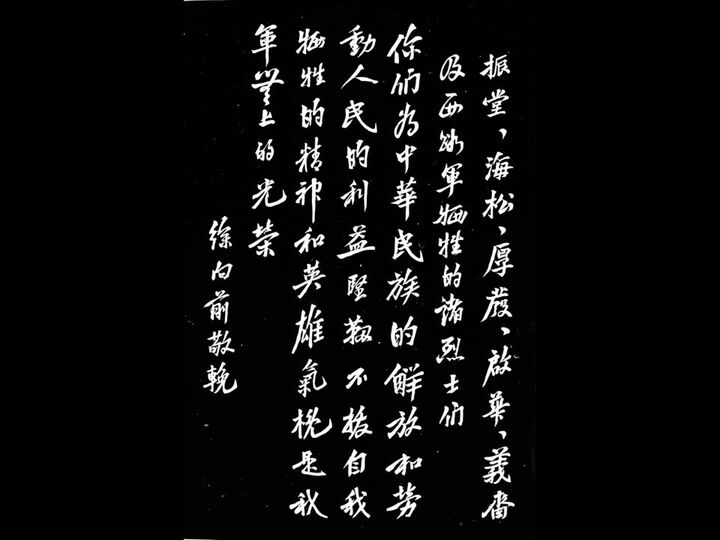 振堂、海松、厚發、啟華、義齋
及西路軍犧牲的諸烈士們
你們為中華民族的解放和勞
動人民的利益堅韌不拔自我
犧牲的精神和英雄氣槪是我
軍無上的光榮
徐向前敬輓